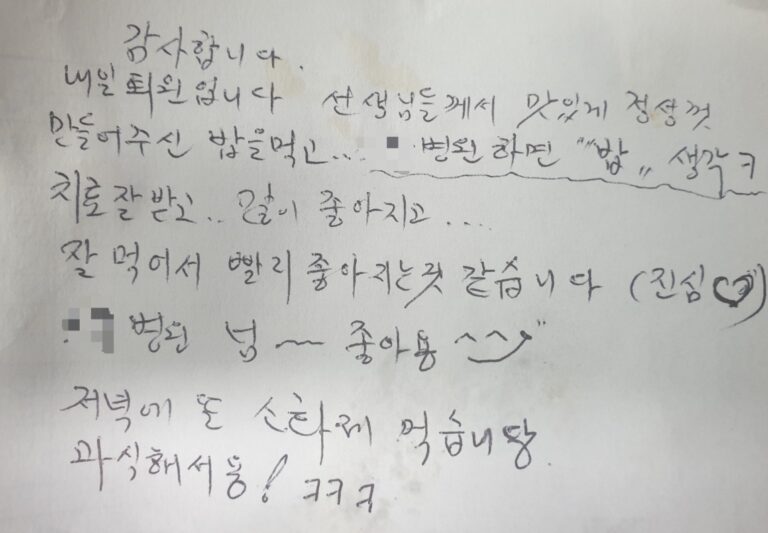 감사합니다.
내일 퇴원입니다 선생님들께서 맛있게 정성껏
만들어주신 밥을먹고... 병원하면 "밥" 생각ㅋ
치료잘받고.. 몸이 좋아지고....
잘 먹어서 빨리 좋아지는것 같습니다 (진심♡)
병원 넘~ 좋아용 ^^
저녁에 또 소화제 먹습니당
과식해서용! ㅋㅋㅋ